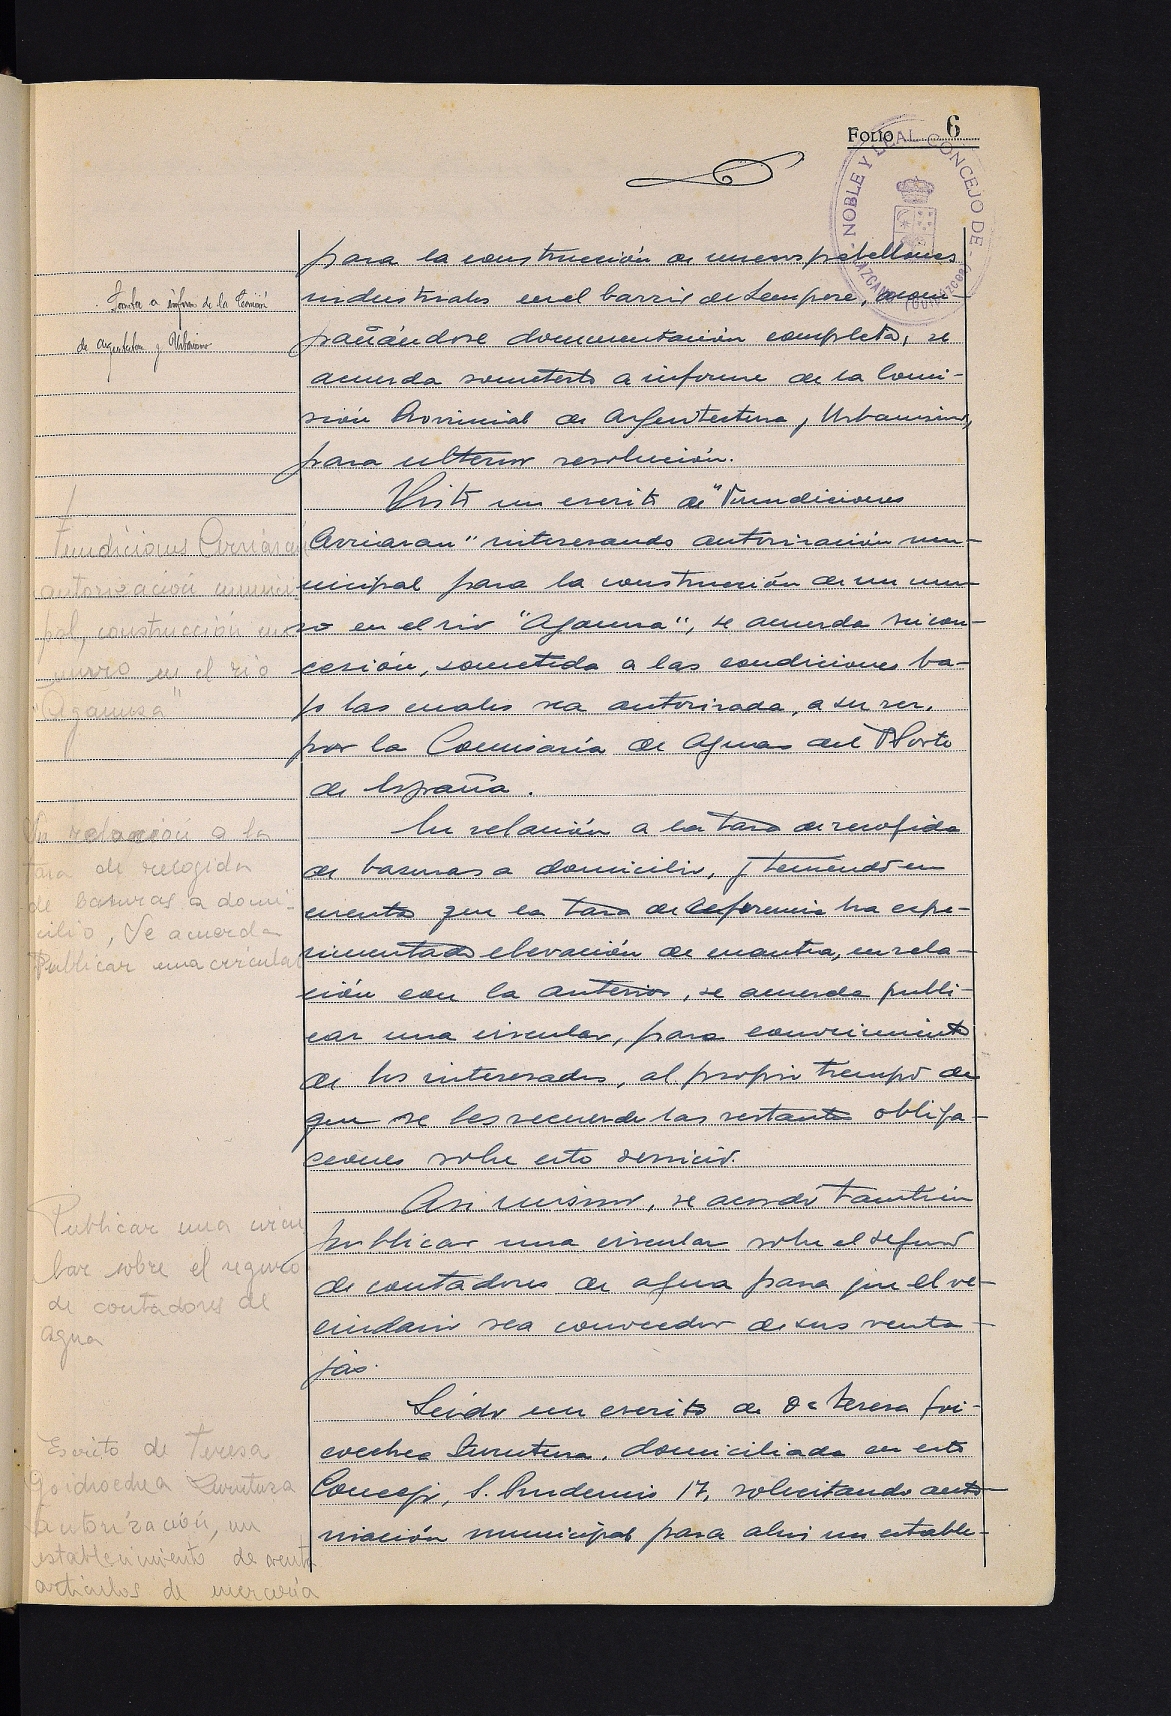 FOLIO 6
NOBLE Y LEAL CONCEJO DE AZCOITIA (GUIPUZCOA)
para la construcción de nuevos pabellones
industriales en el barrio de Sempere, acom-
pañándose documentación completa, se
acuerda someterlo a informe de la Comi-
sión Provincial de Arquitectura y Urbanismo,
para ulterior resolución.
Visto un escrito de "Fundiciones
Arriaran" interesando autorización mu-
nicipal para la construcción de un mu-
ro en el rio "Aganza", se acuerda su con-
cesión, sometida a las condiciones ba-
jo las cuales sea autorizada, a su vez,
por la Comisaría de Aguas del Norte
de España.
En relación a la tasa de recogida
de basuras a domicilio, y teniendo en
cuenta que la tasa de referencia ha expe-
rimentado elevación de cuantia, en rela-
ción con la anterior, se acuerda publi-
car una circular, para conocimiento
de los interesados, al propio tiempo de
que se les recuerde las restantes obliga-
ciones sobre este servicio.
Asi mismo, se acordó tambien
publicar una circular sobre el seguro
de contadores de agua para que el ve-
cindario sea conocedor de sus venta-
jas.
Leido un escrito de Dª Teresa Goi-
coechea Zurutuza, domiciliada en este
Concejo, S. Prudencio 17, solicitando auto-
rización municipal para abrir un estable-
Someter a informe de la Comisión
de Arquitectura y Urbanismo
Fundiciones Arriaran
autorización munici-
pal, construcción un
muro en el rio
"Aganza"
En relación a la
tasa de recogida
de basuras a domi-
cilio, Se acuerda
Publicar una circular
Publicar una circu
lar sobre el seguro
de contadores de
agua
Escrito de Teresa
Goicoechea Zurutuza
autorización, un
establecimiento de venta
artículos de mercería